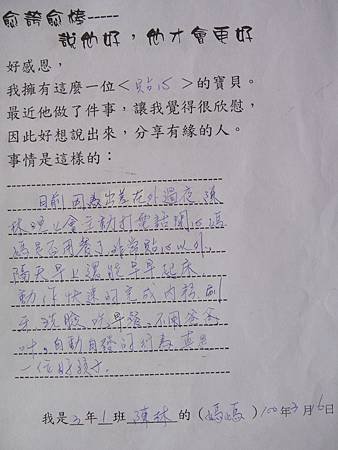 愈誇愈棒-----
說他好，他才會更好
好感恩，
我擁有這麼一位＜貼心＞的寶貝。
最近他做了件事，讓我覺得很欣慰，
因此好想說出來，分享有緣的人。
事情是這樣的：
目前因為出差在外過夜 陳
林晚上會主動打電話關心媽
媽是否用餐了 非常貼心以外，
隔天早上還能早早起床
動作快速的完成內務刷
牙洗臉 吃早餐、不用爸爸
吼。自動自發的行為 真是
一位好孩子。
我是 3 年 1 班 陳林 的（媽媽）100年3月16日